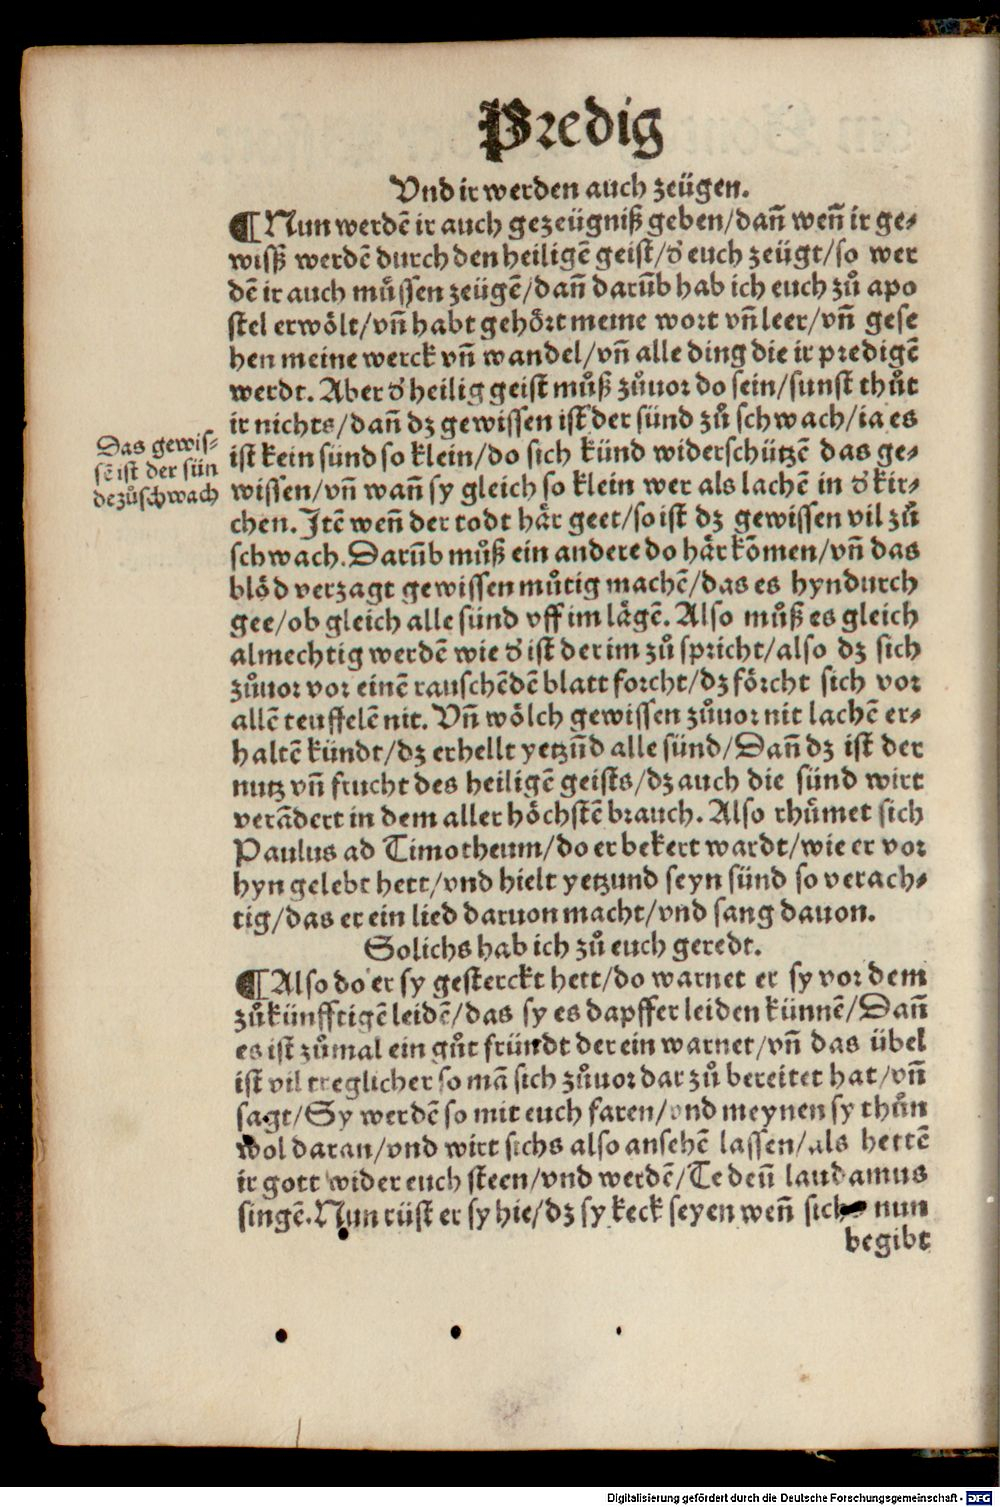 Predig
Vnd ir werden auch zeügen.
¶ Nun werdē ir auch gezeügniß geben/dañ weñ ir ge-
wisß werdē durch den heiligē geist/d' euch zeügt/so wer
dē ir auch müssen zeügē/dañ darūb hab ich euch zů apo
stel erwölt/vñ habt gehört meine wort vñ leer/vñ gese
hen meine werck vñ wandel/vñ alle ding die ir predigē
werdt. Aber d' heilig geist můß zůuor do sein/sunst thůt
ir nichts/dañ dz gewissen ist der sünd zů schwach/ia es
ist kein sünd so klein/do sich künd widerschützē das ge-
wissen/vñ wañ sy gleich so klein wer als lachē in d' kir-
chen. Itē weñ der todt här geet/so ist dz gewissen vil zů
schwach. Darūb můß ein andere do här kōmen/vñ das
blöd verzagt gewissen můtig machē/das es hyndurch
gee/ob gleich alle sünd vff im lägē. Also můß es gleich
almechtig werdē wie d' ist der im zů spricht/also dz sich
zůuor vor einē rauschēdē blatt forcht/dz förcht sich vor
allē teuffelē nit. Vñ wölch gewissen zůuor nit lachē er-
haltē kündt/dz erhellt yetzūd alle sünd/Dañ dz ist der
nutz vñ frucht des heiligē geists/dz auch die sünd wirt
verādert in dem aller höchstē brauch. Also rhümet sich
Paulus ad Timotheum/do er bekert wardt/wie er vor
hyn gelebt hett/vnd hielt yetzund seyn sünd so verach-
tig/das er ein lied daruon macht/vnd sang dauon.
Solichs hab ich zů euch geredt.
¶ Also do er sy gesterckt hett/do warnet er sy vor dem
zůkünfftigē leidē/das sy es dapffer leiden künnē/Dañ
es ist zůmal ein gůt fründt der ein warnet/vñ das übel
ist vil treglicher so mā sich zůuor dar zů bereitet hat/vñ
sagt/Sy werdē so mit euch faren/vnd meynen sy thůn
wol daran/vnd wirt sichs also ansehē lassen/als hettē
ir gott wider euch steen/vnd werdē/Te deū laudamus
singē. Nun rüst er sy hie/dz sy keck seyen weñ sich nun
begibt
Das gewis-
sē ist der sün
de zů schwach
Digitalisierung gefördert durch die Deutsche Forschungsgemeinschaft - DFG